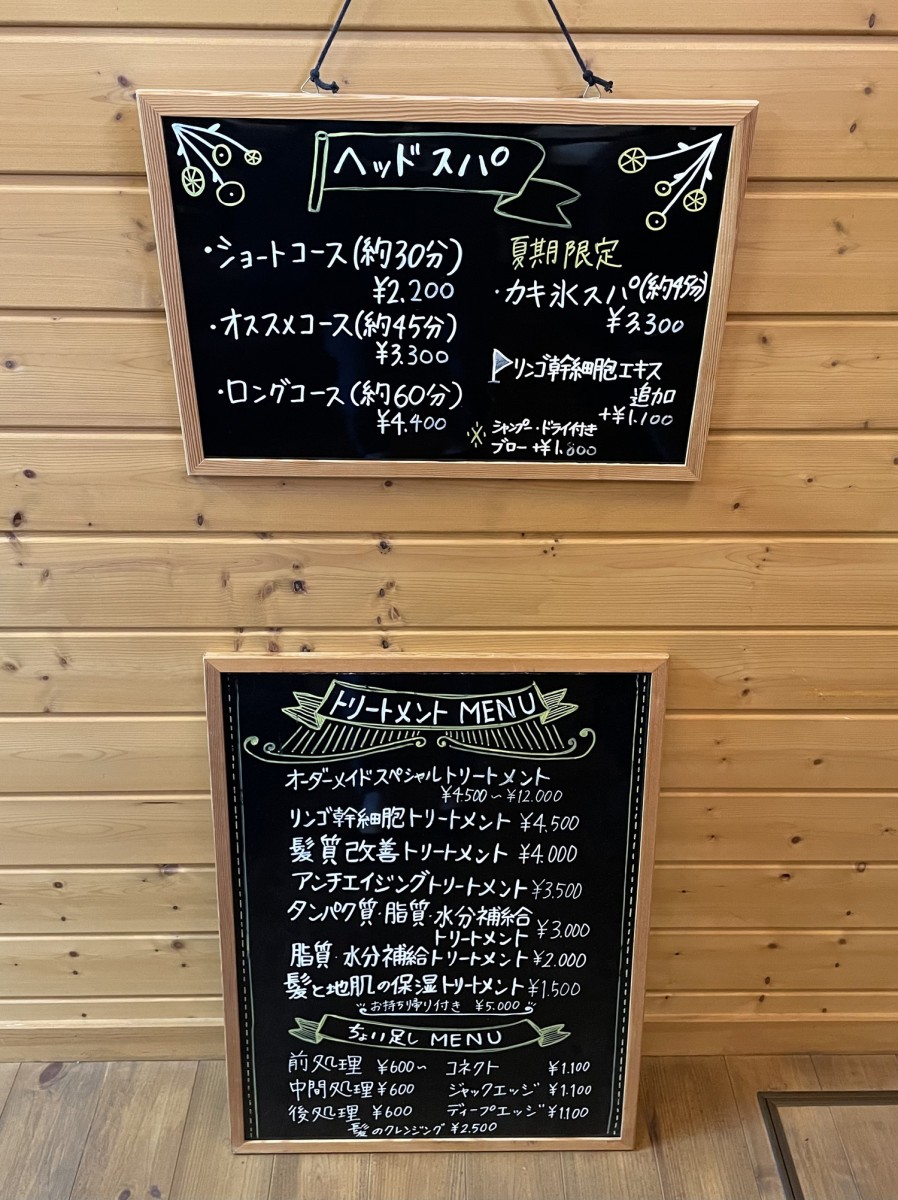 ヘッドスパ
・ショートコース(約30分)
¥2.200
・オススメコース(約45分)
¥3.300
・ロングコース(約60分)
¥4.400
夏期限定
・カキ氷スパ(約45分)
¥3.300
リンゴ幹細胞エキス
追加
+¥1.100
※ シャンプー・ドライ付き
ブロー +¥1.800
トリートメント MENU
オーダーメイドスペシャルトリートメント
¥4.500〜¥12.000
リンゴ幹細胞トリートメント ¥4.500
髪質改善トリートメント ¥4.000
アンチエイジングトリートメント ¥3.500
タンパク質・脂質・水分補給
トリートメント ¥3.000
脂質・水分補給トリートメント ¥2.000
髪と地肌の保湿トリートメント ¥1.500
お持ち帰り付き ¥5.000
ちょい足し MENU
前処理 ¥600〜 コネクト ¥1.100
中間処理 ¥600 ジャックエッジ ¥1.100
後処理 ¥600 ディープエッジ ¥1.100
髪のクレンジング ¥2.500